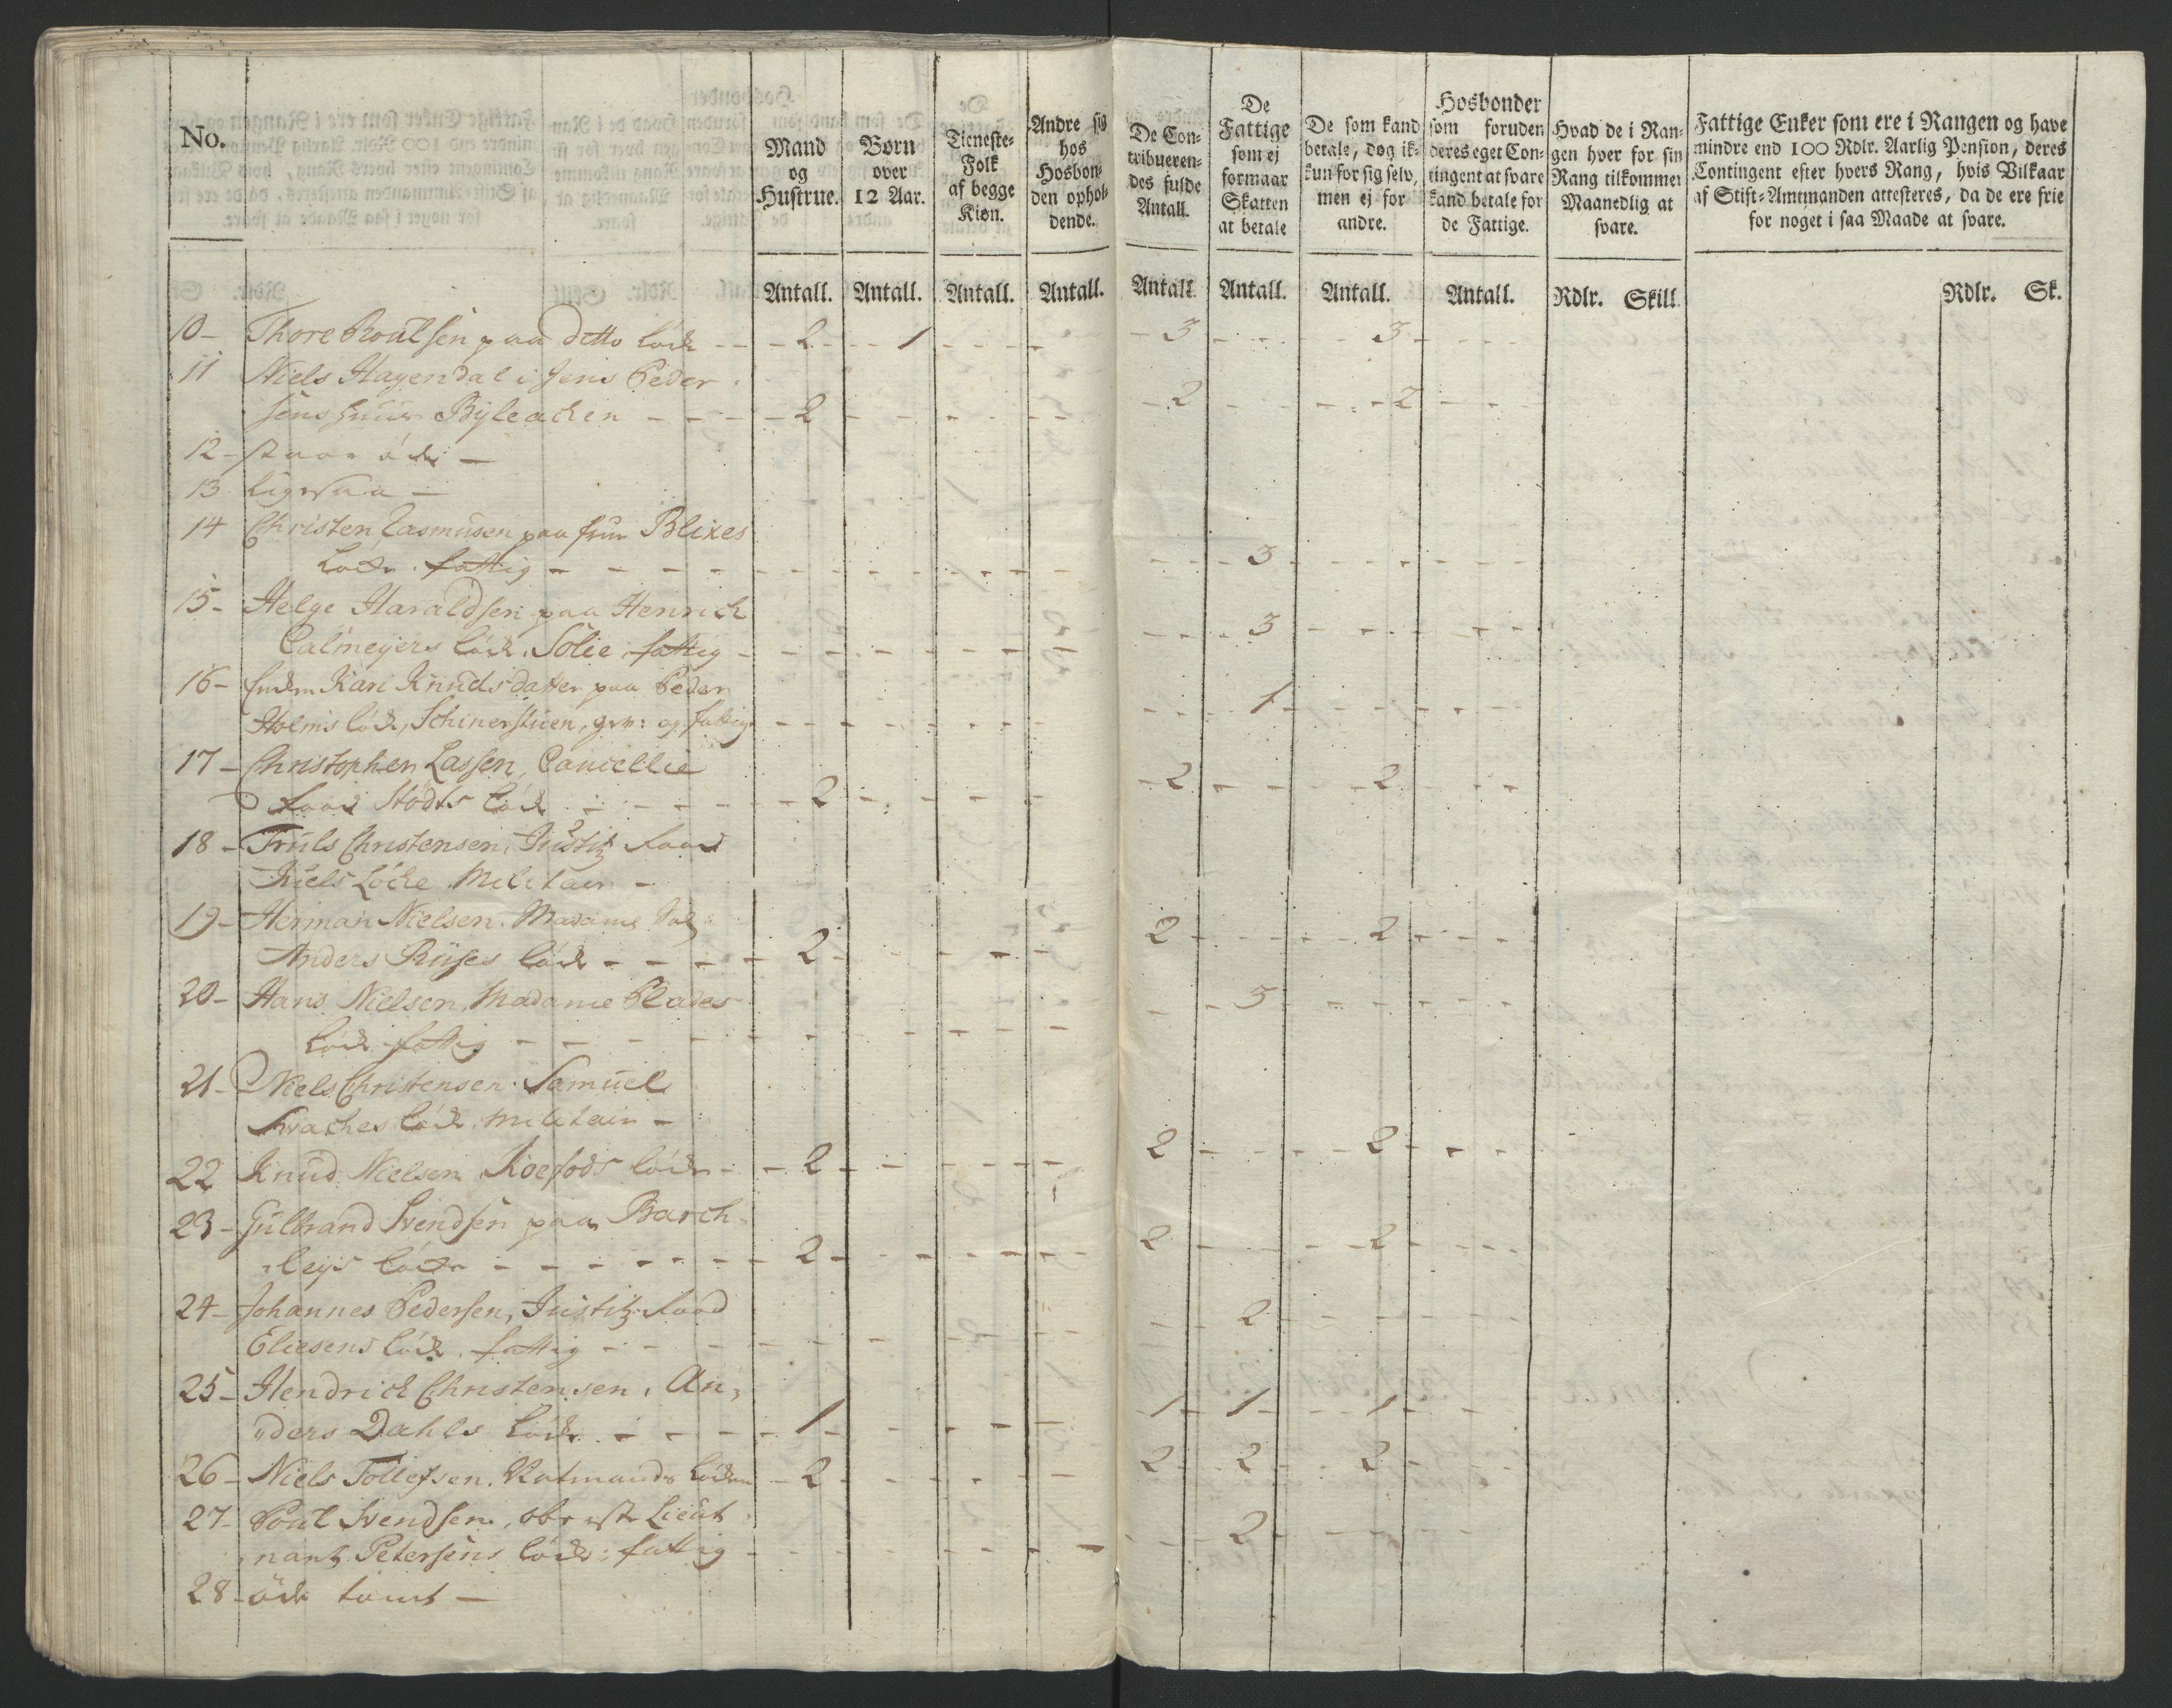 No.
Mand
og
Hustrue.
Børn
over
12 Aar.
Tieneste-
Folk
af begge
Kiøn.
Andre sig
hos
Hosbon-
den ophol-
dende.
De Con-
tribueren-
des fulde
Antall.
De
Fattige
som ej
formaar
Skatten
at betale
De som kand
betale, dog ik-
kun for sig selv,
men ej for
andre.
Hosbonder
som foruden
deres eget Con-
tingent at svare
kand betale for
de Fattige.
Hvad de i Ran-
gen hver for sin
Rang tilkommer
Maanedlig at
svare.
Fattige Enker som ere i Rangen og have
mindre end 100 Rdlr. Aarlig Pension, deres
Contingent efter hvers Rang, hvis Vilkaar
af Stift-Amtmanden attesteres, da de ere frie
for noget i saa Maade at svare.
Antall. Antall. Antall. Antall. Antall Antall. Antall. Antall. Rdlr. Skill. Rdlr. Sk.
10- Thore Poulsen paa ditto Löcke - - 2 - - 1 - - - 3 - - - 3 - - -
11 Niels Hagendal i Jens Peder
sens Huus Byleachen - - - 2 - - - 2 - - - 2 - -
12- staar öde -
13 ligesaa -
14 Christen Rasmusen paa frue Blixes
Löcke. fattig - - - - 3 - - -
15- Helge Haraldsen paa Henrich
Calmeyers Löcke, Solie, fattig - - - - 3 - - -
16- Enken Kari Knudsdatter paa Peder
Holms Löcke, Schinerstuen, gm: og fattig - - - - 1 - - -
17- Christopher Lassen, Cancellie
Raad Stodts Löcke - - - 2 - - - 2 - - - 2 - -
18- Truls Christensen, Justitz Raad
Kiels Löcke Militair -
19- Herman Nielsen. Madame Sal:
Anders Riises Löcke - - - 2 - - - 2 - - - 2 - - -
20- Hans Nielsen, Madame Plades
Löcke fattig - - - - 3 - - -
21- Niels Christensen. Samuel
Swaches Löcke. Militair -
22 Knud Nielsen Koefods Löcke - - 2 - - - 2 - - - 2 - - -
23- Gulbrand Svendsen paa Barch-
leys Löcke - - - 2 - - - 2 - - - 2 - - -
24- Johannes Pedersen, Justitz Raad
Eliesens Löcke. fattig - - - - 2 - - -
25- Hendrick Christensen, An-
ders Dahls Löcke - - - 1 - - - 1 - 1 - - 1 - -
26- Niels Tollefsen. Löcke - 2 - - - 2 - 2 - - 2 - -
27- Poul Svendsen, oberste Lieut
nant Petersens Löcke: fattig - - - - 2 - - -
28- öde tomt -